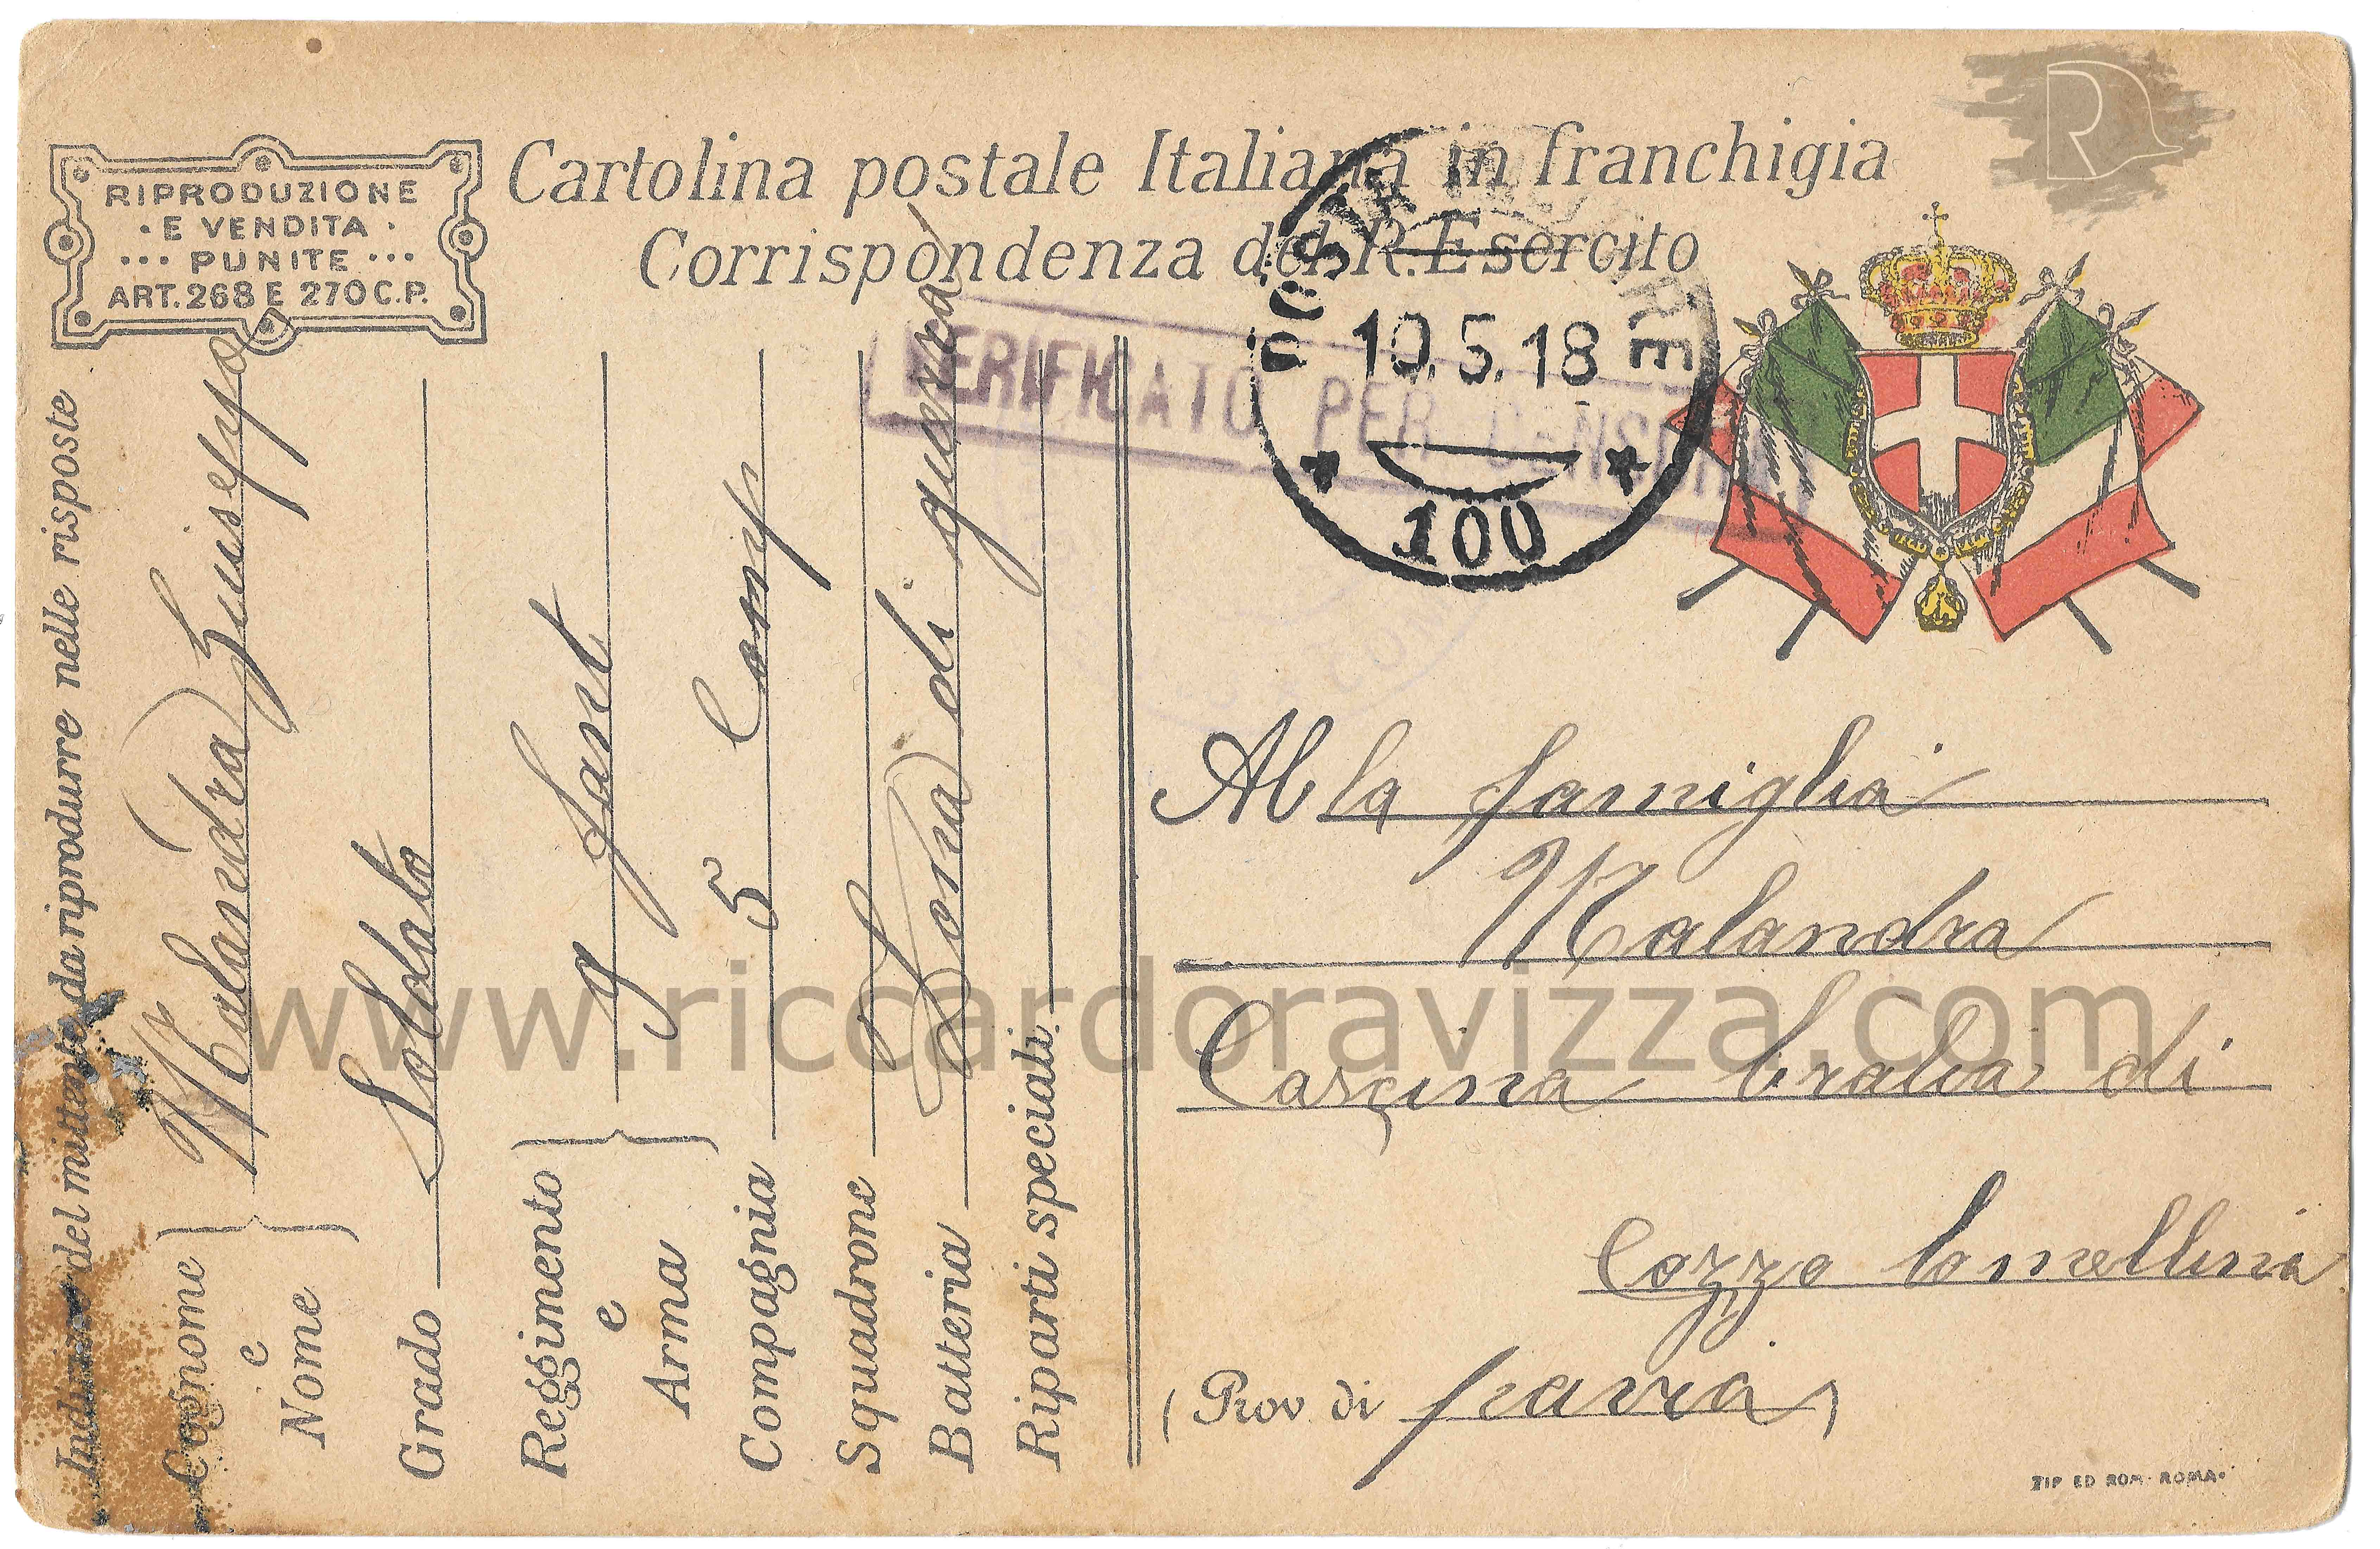 RIPRODUZIONE
· E VENDITA ·
··· PUNITE ···
ART. 268 E 270 C.P.
Cartolina postale Italiana in franchigia
Corrispondenza del R. Esercito
VERIFICATO PER CENSURA
POSTA MILITARE
10.5.18
100
Indirizzo del mittente da riprodurre nelle risposte
Cognome e Nome Malandra Giuseppe
Grado Soldato
Reggimento e Arma 9 fant
Compagnia 5 Comp
Squadrone
Batteria Zona di guerra
Riparti speciali
Alla famiglia
Malandra
Cascina di
Cozzo lomellina
(Prov di pavia)
TIP ED ROM · ROMA ·
www.riccardoravizza.com
R